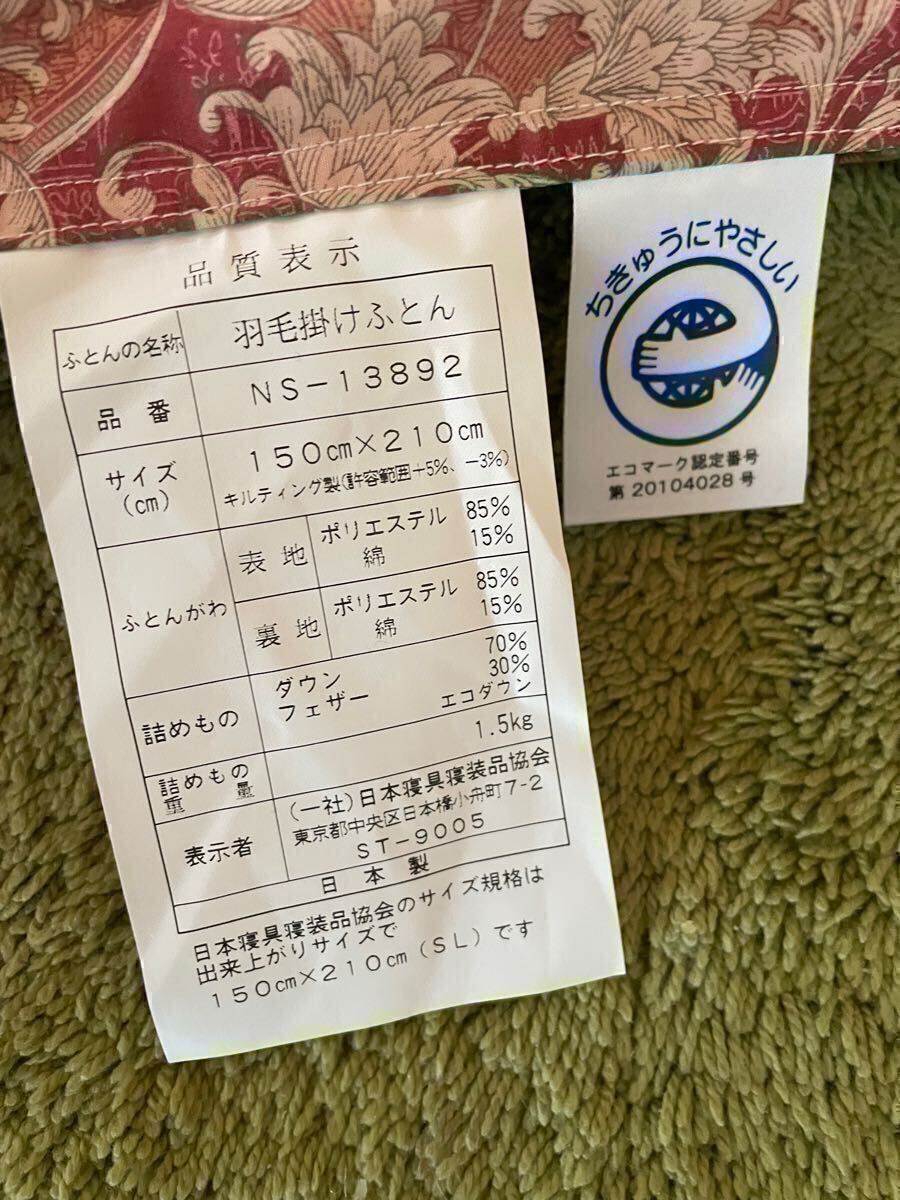 品質表示
ふとんの名称 羽毛掛けふとん
品番 NS-13892
サイズ(cm) 150cm×210cm
キルティング製(許容範囲+5%、-3%)
ふとんがわ 表地 ポリエステル 85%
綿 15%
裏地 ポリエステル 85%
綿 15%
詰めもの ダウン 70%
フェザー 30%
エコダウン
詰めもの重量 1.5kg
表示者 (一社)日本寝具寝装品協会
東京都中央区日本橋小舟町7-2
ST-9005
日本製
日本寝具寝装品協会のサイズ規格は
出来上がりサイズで
150cm×210cm(SL)です
ちきゅうにやさしい
エコマーク認定番号
第 20104028 号